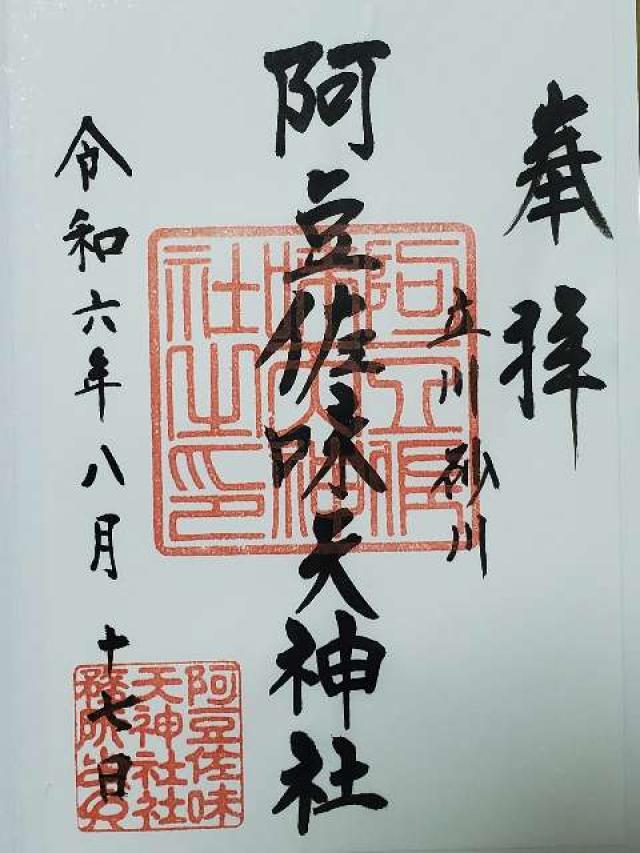 奉拝
立川 砂川
阿豆佐味天神社
令和六年八月十七日
阿豆佐
味天神
社之印
阿豆佐味
天神社社
務所之印